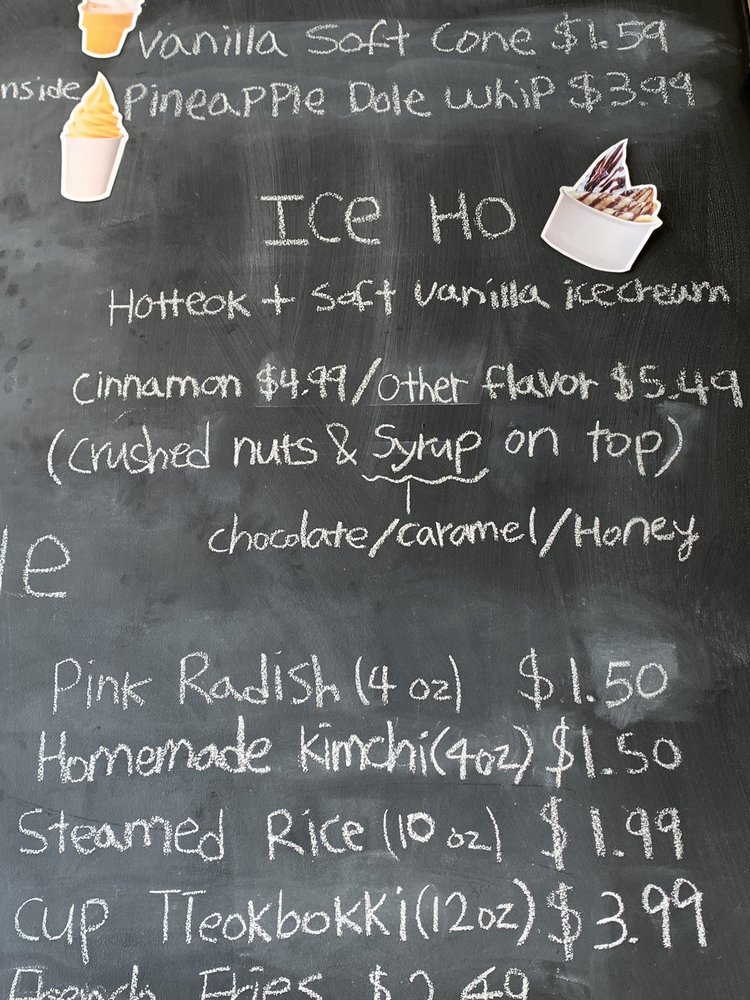 Vanilla Soft Cone $1.59
nside Pineapple Dole Whip $3.99
ICe HO
Hotteok + Soft Vanilla icecream
Cinnamon $4.99/other flavor $5.49
(Crushed nuts & Syrup on top)
chocolate/caramel/Honey
le
Pink Radish (4 oz) $1.50
Homemade Kimchi (4oz) $1.50
Steamed Rice (10 oz) $1.99
Cup TTeokbokki (12oz) $3.99
French Fries $2.49